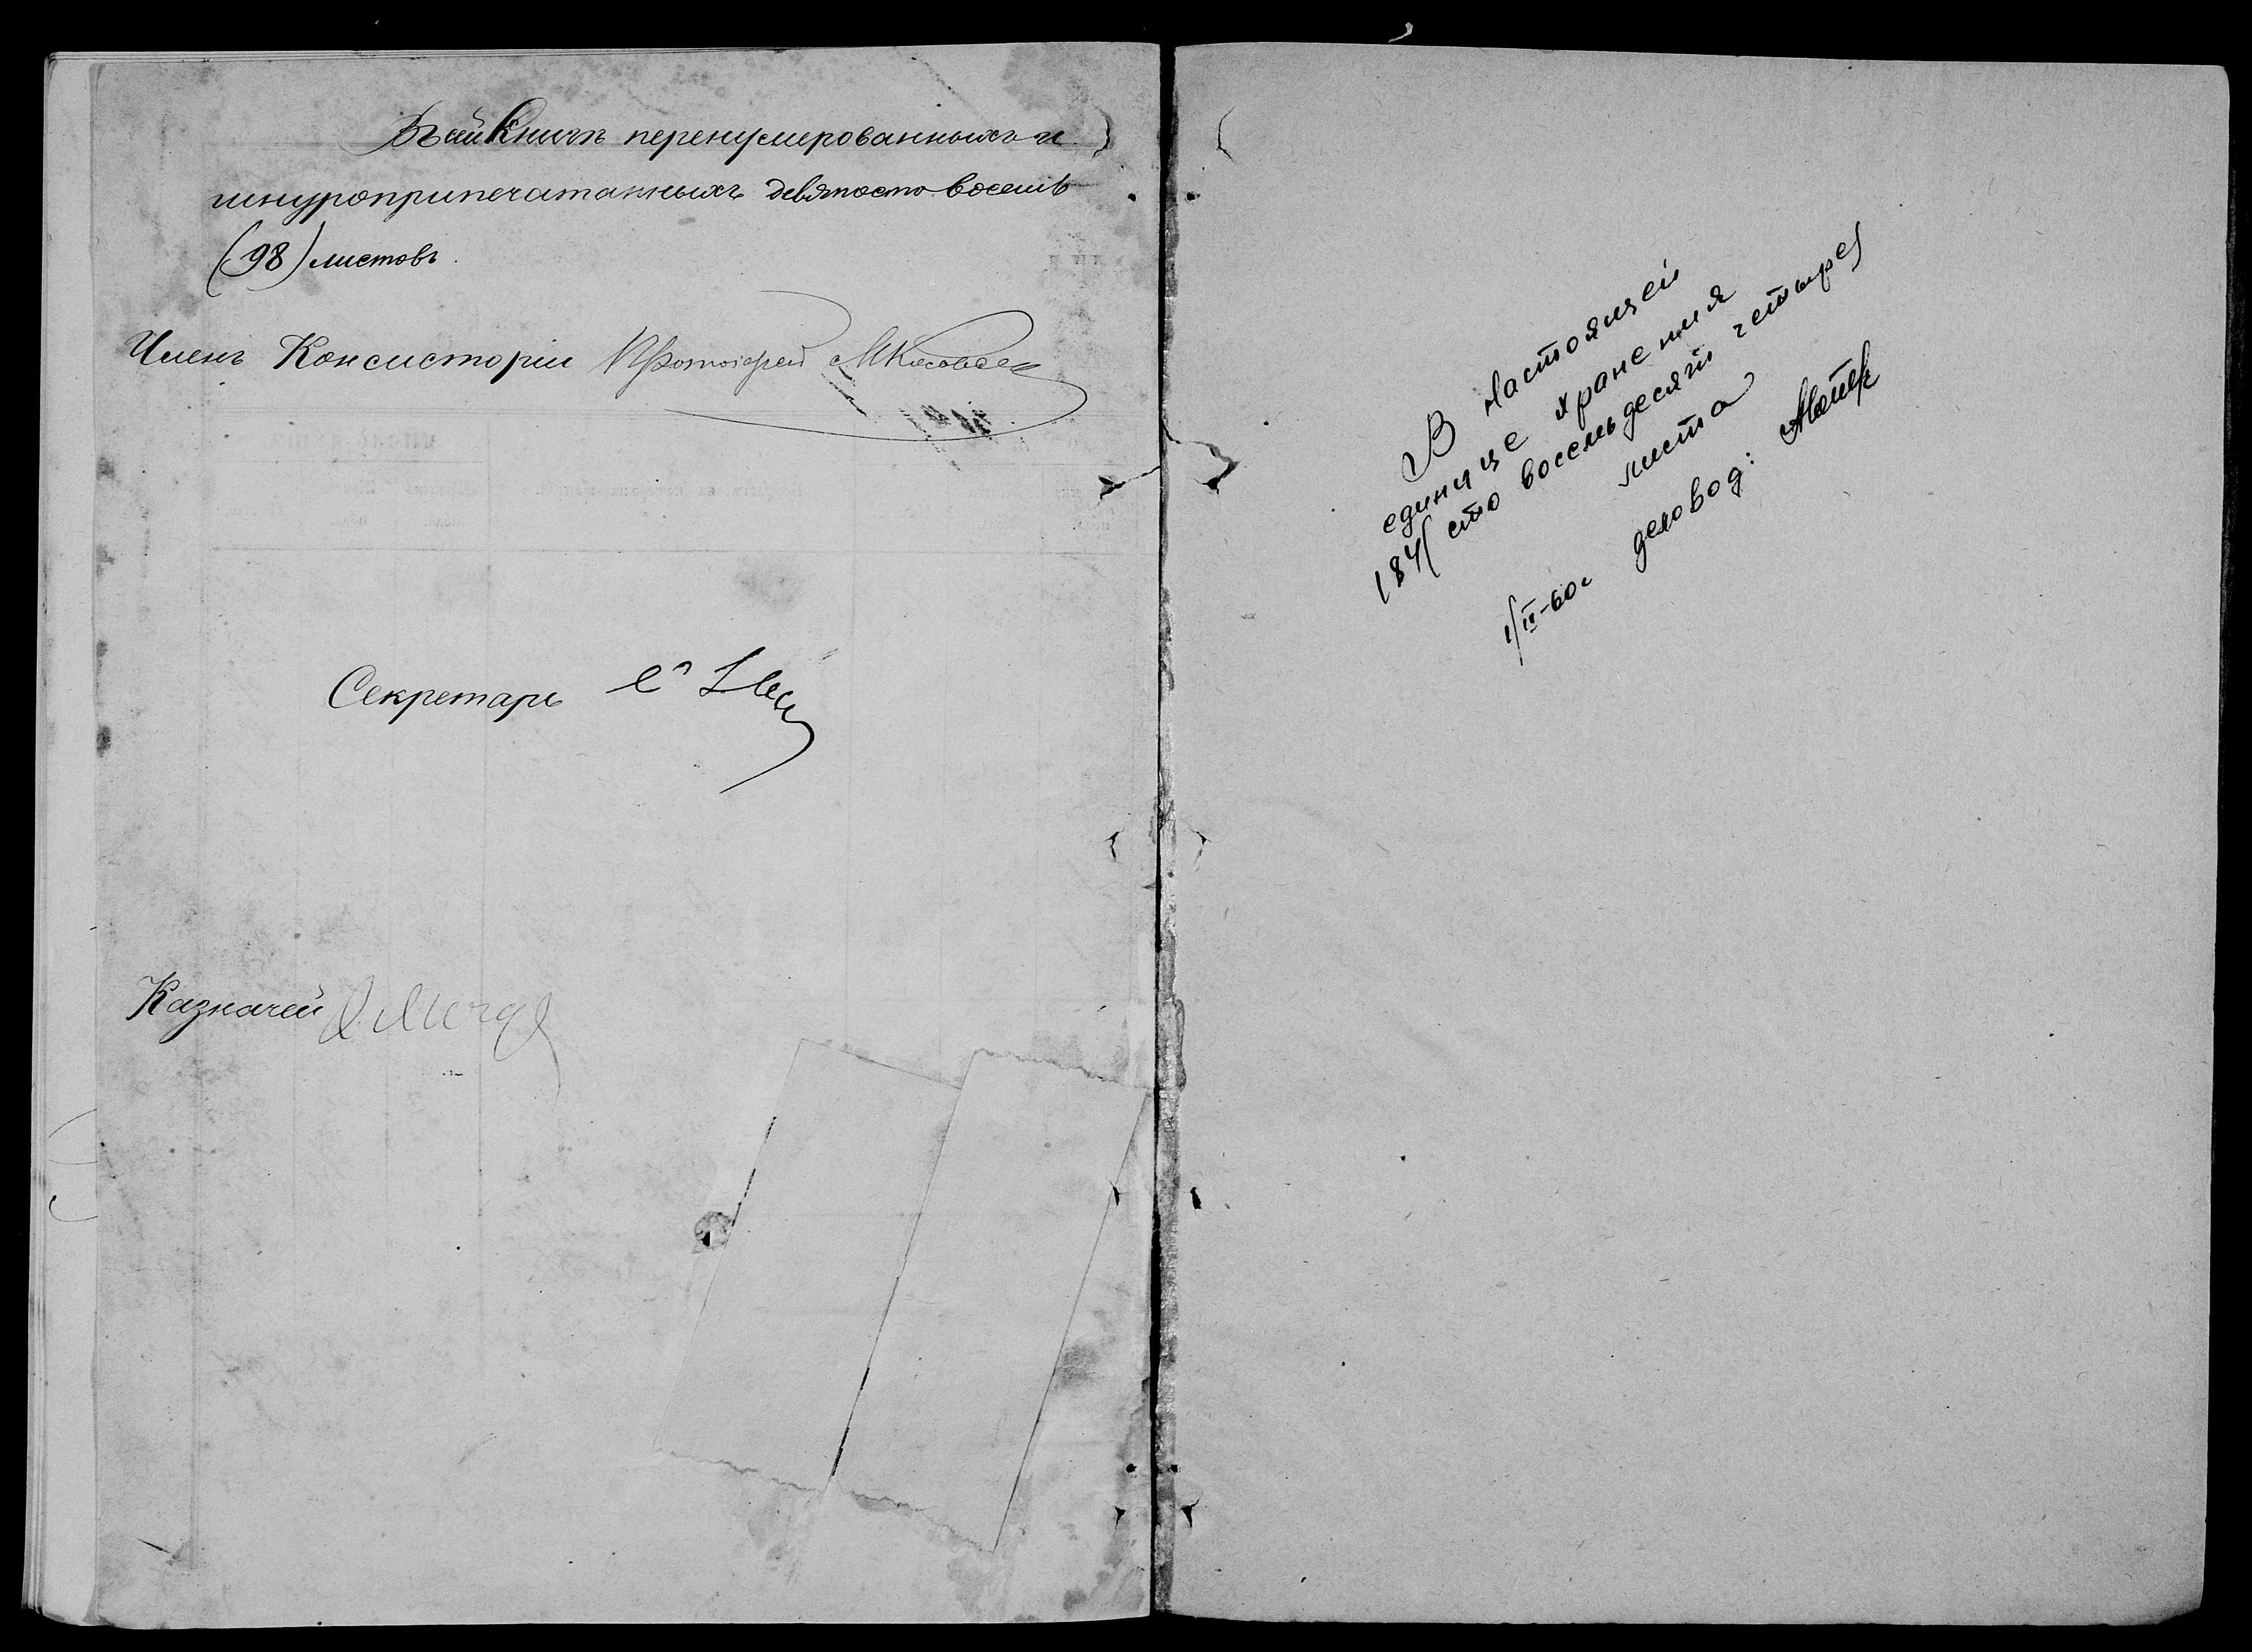 Въ сей книгѣ перенумерованныхъ и
шнуроприпечатанныхъ девяносто восемь
(98) листовъ.
Членъ Консисторіи Протоіерей
Секретарь
Казначей
В настоящей
единице хранения
184/ сто восемьдесят четыре/
листа
1/II-60г деловод: